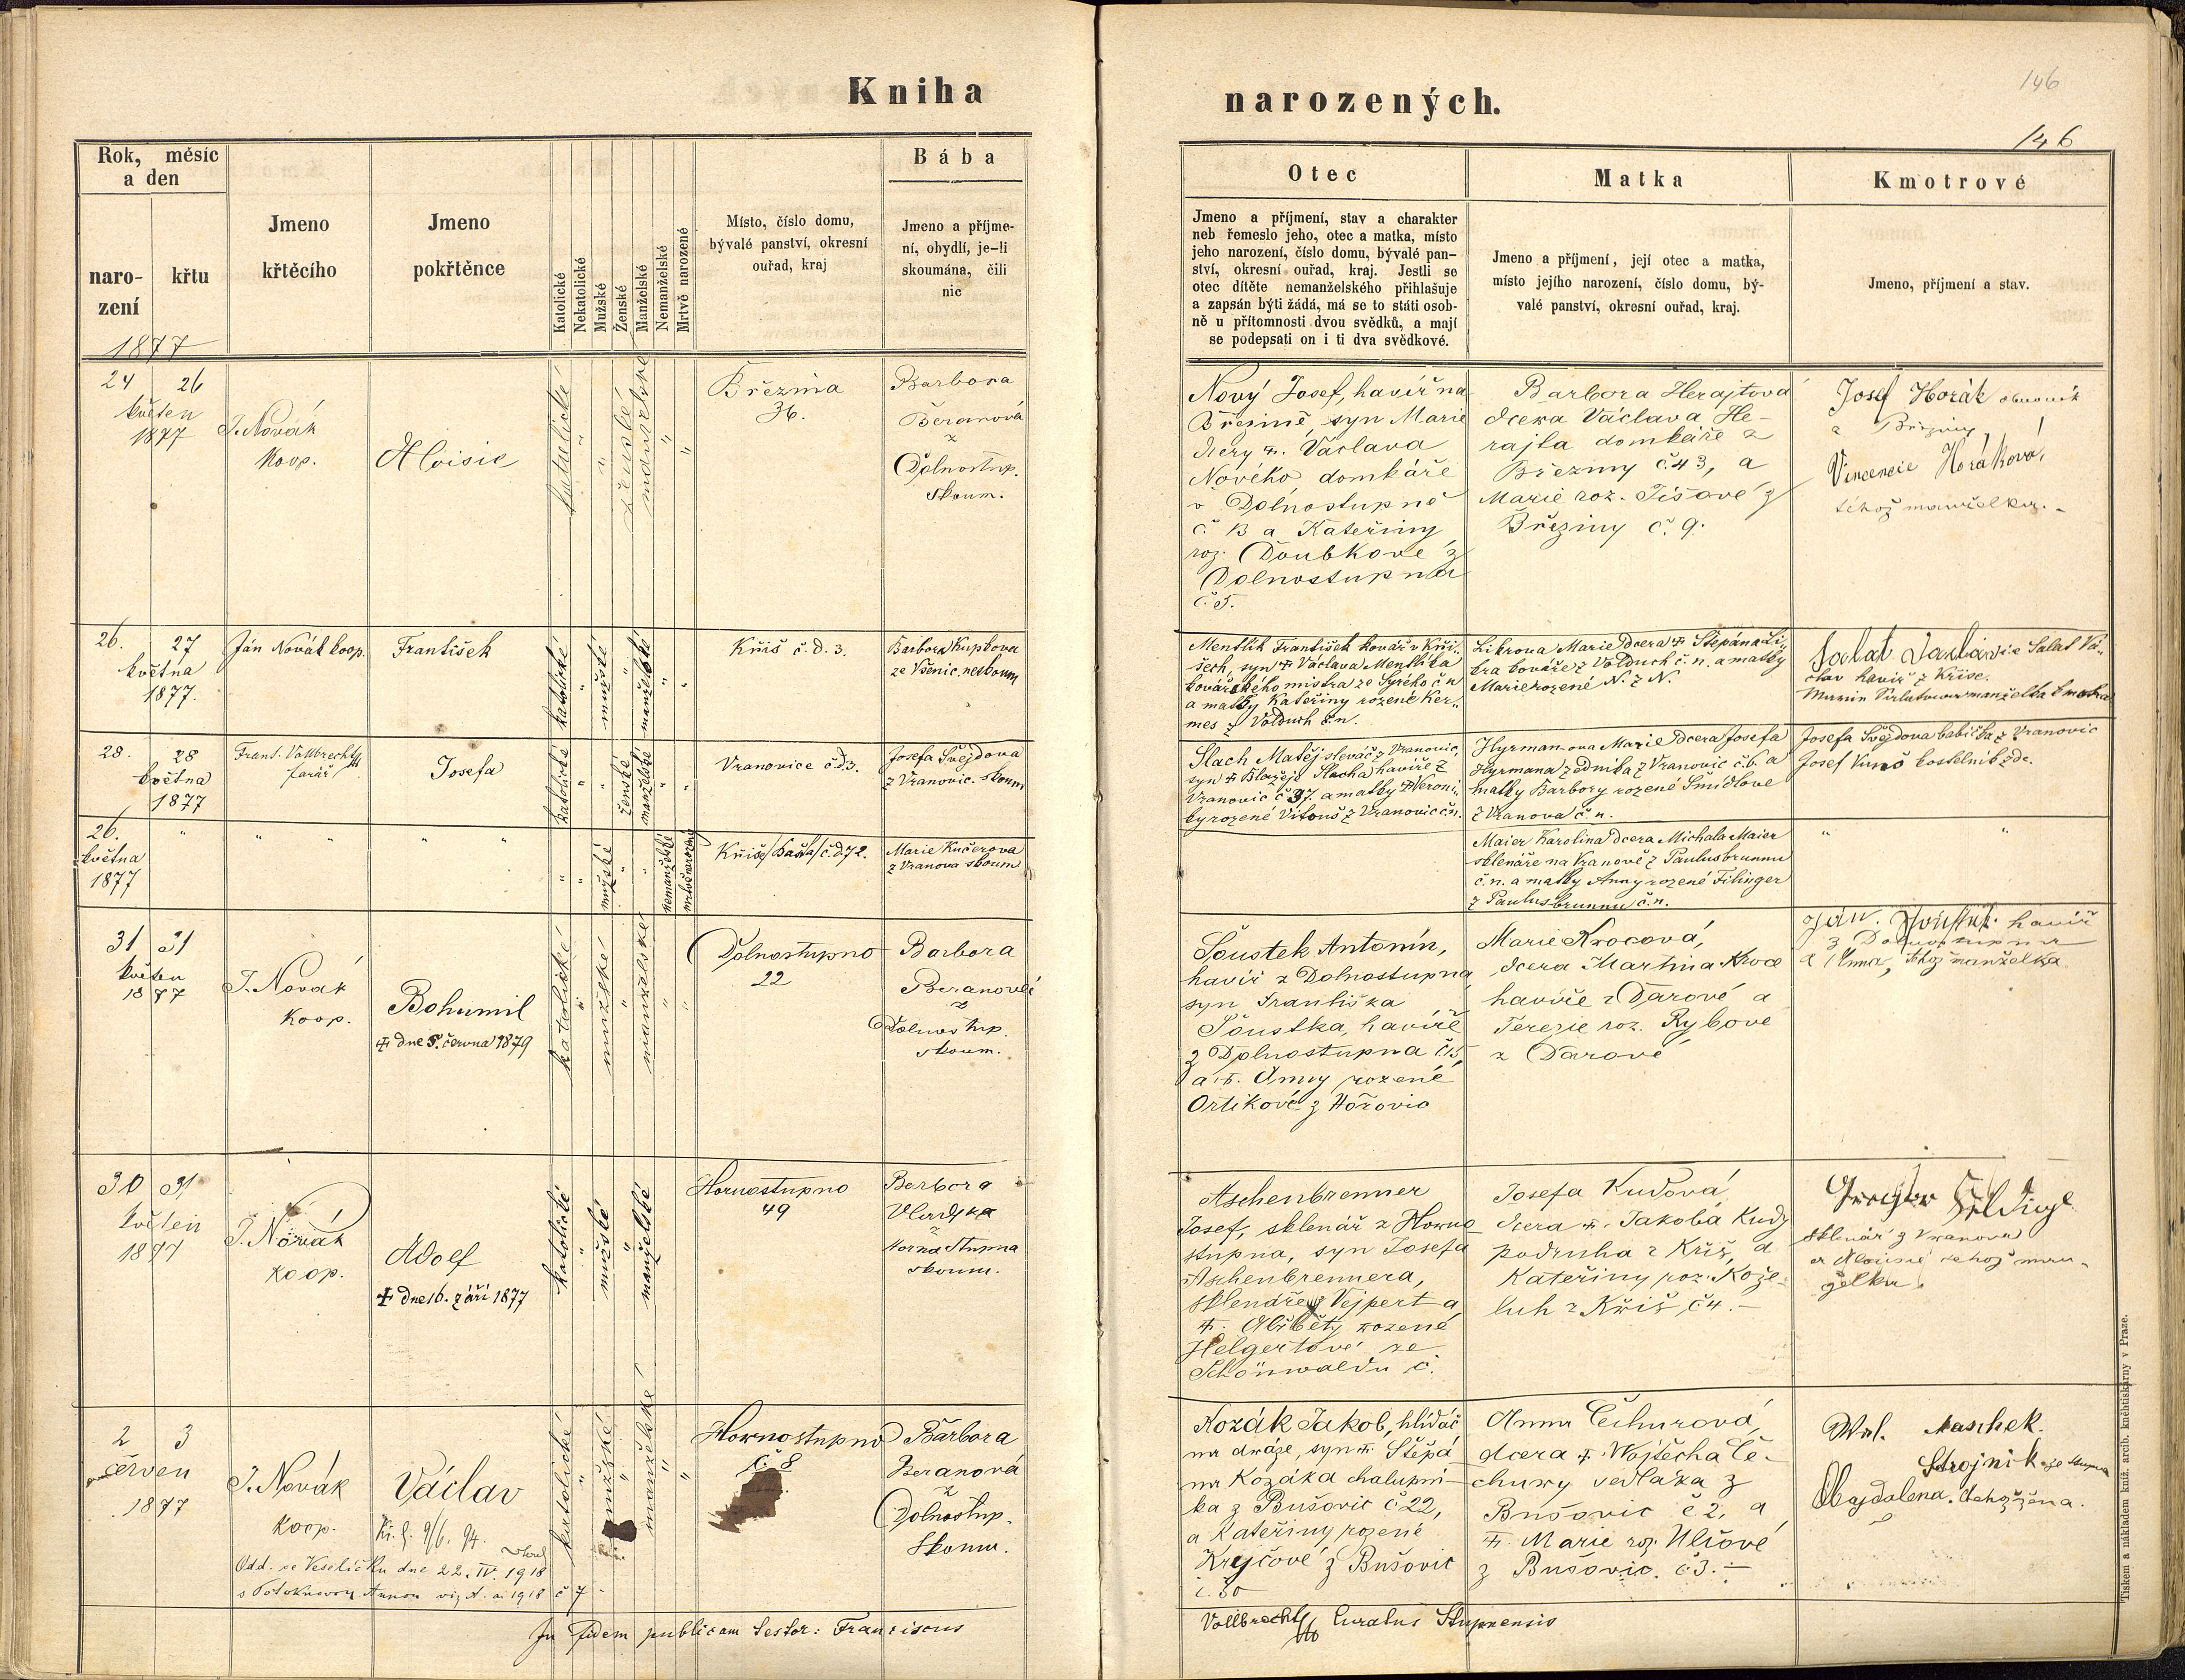 Kniha
narozených.
146
146
Rok, měsíc
a den
naro-
zení
křtu
1877
Jmeno
křtěcího
Jmeno
pokřtěnce
Katolické
Nekatolické
Mužské
Ženské
Manželské
Nemanželské
Mrtvě narozené
Místo, číslo domu,
bývalé panství, okresní
ouřad, kraj
Bába
Jmeno a příjme-
ní, obydlí, je-li
skoumána, čili
nic
Otec
Jmeno a příjmení, stav a charakter
neb řemeslo jeho, otec a matka, místo
jeho narození, číslo domu, bývalé pan-
ství, okresní ouřad, kraj. Jestli se
otec dítěte nemanželského přihlašuje
a zapsán býti žádá, má se to státi osob-
ně u přítomnosti dvou svědků, a mají
se podepsati on i ti dva svědkové.
Matka
Jmeno a příjmení, její otec a matka,
místo jejího narození, číslo domu, bý-
valé panství, okresní ouřad, kraj.
Kmotrové
Jmeno, příjmení a stav.
24 26
květen
1877
J. Novák
koop.
Aloisie
katolické
"
"
ženské
manželské
"
"
Březina
36.
Barbora
Beranová
z
Dolnostup.
skoum.
Nový Josef, havíř na
Březině, syn Marie
dcery +. Václava
Nového domkáře
v Dolnostupně
č 13 a Kateřiny
roz. Doubkové z
Dolnostupna
č. 5.
Barbora Herajtova
dcera Václava He-
rajta domkáře z
Březiny č. 43, a
Marie roz. Tišové z
Březiny č. 9.
Josef Horák
z Březiny
Vincencie Horáková,
téhož manželka. -
26. 27
května
1877.
Ján Novák koop.
František
katolické
"
mužské
"
manželské
"
"
Kříš č.d. 3.
Barbora Kupkova
ze Všenic neskoum
Mentlík František kovář v Kří-
šech, syn + Václava Mentlíka
kovářského mistra ze Syrého č n
a matky Kateřiny rozené Ker-
mes z Volduch č.n.
Likrova Marie dcera + Štěpána Li-
kra kováře z Volduch č.n. a matky
Marie rozené N. z N.
Salat Vá-
clav havíř z Kříše.
manželka
28. 28
května
1877
Frant. Vollbrecht
farář
Josefa
katolické
"
ženské
manželské
"
"
Vranovice č.d 3.
Josefa Švejdova
z Vranovic. skoum
Šlach Matěj slevač z Vranovic,
syn + Blažeje Šlacha havíře z
Vranovic č 37. a matky + Veroni-
ky rozené Vitouš z Vranovic č.n.
Hyrman-ova Marie dcera Josefa
Hyrmana zedníka z Vranovic č. 6. a
matky Barbory rozené Šmídlove
z Vranova č. n.
Josefa Švejdova babička z Vranovic
Josef kostelník zde.
26.
května
1877
" " " " "
"
"
mužské
"
"
nemanželské
mrtvě narozený
Kříše/Bašta/č.d 72.
Marie Kučerova
z Vranova skoum
Maier Karolina dcera Michala Maier
sklenáře na Vranově z Paulusbrunnu
č. n. a matky Anny rozené Filinger
z Paulusbrunnu č. n.
" "
31 31
květen
1877
J. Novák
koop.
Bohumil
+ dne 5. června 1879
katolické
"
mužské
"
manželské
"
"
Dolnostupno
22
Barbora
Beranová
z
Dolnostup.
skoum.
Šoustek Antonín,
havíř z Dolnostupna
syn Františka
Šoustka, havíře
z Dolnostupna č 15,
a +. Anny rozené
Ortikové z Hořovic
Marie Krocová,
dcera Martina Kroce
havíře z Darové a
Terezie roz. Rybové
z Darové
Ján. havíř
z Dolnostupna
a Anna, téhož manželka
30 31
květen
1877
J. Novák
koop.
Adolf
+ dne 16. září 1877
katolické
"
mužské
"
manželské
Hornostupno
49
Barbora
z
Horna Stupna
skoum.
Aschenbrenner
Josef, sklenář z Horno
stupna, syn Josefa
Aschenbrennera,
sklenáře z Vejpert a
+. Alžběty rozené
Helgertové ze
Schönwaldu č.
Josefa Kudová
dcera +. Jakobá Kudy
podruha z Kříš, a
Kateřiny roz. Kože-
luh z Kříš č 4. -
sklenář z Vranova
a Aloisie tehož man-
želka.
2 3
červen
1877
J. Novák
koop.
Václav
Kř. l. 9/6. 94.
Odd. ve Veselíčku dne 22. IV. 1918
viz A. ai 1918 č 7 -
katolické
"
mužské
"
manželské
"
"
Hornostupno
č. 8
Barbora
Beranová
z
Dolnostup.
Skoum.
Kozák Jakob, hlídač
na dráze, syn +. Štěpá
na Kozáka chalupní-
ka z Bušovic č 22,
a Kateřiny rozené
Krejčové z Bušovic
č. 30
Anna Čechurová,
dcera +. Vojtěcha Če-
chury sedláka z
Bušovic č 2, a
+. Marie roz. Ulčové
z Bušovic. č 3. -
Maschek.
Strojník
Magdalena. tehož žena.
In fidem publicam testor: Franciscus
Vollbrecht Curatus Stupnensis
Tiskem a nákladem kníž. arcib. knihtiskárny v Praze.